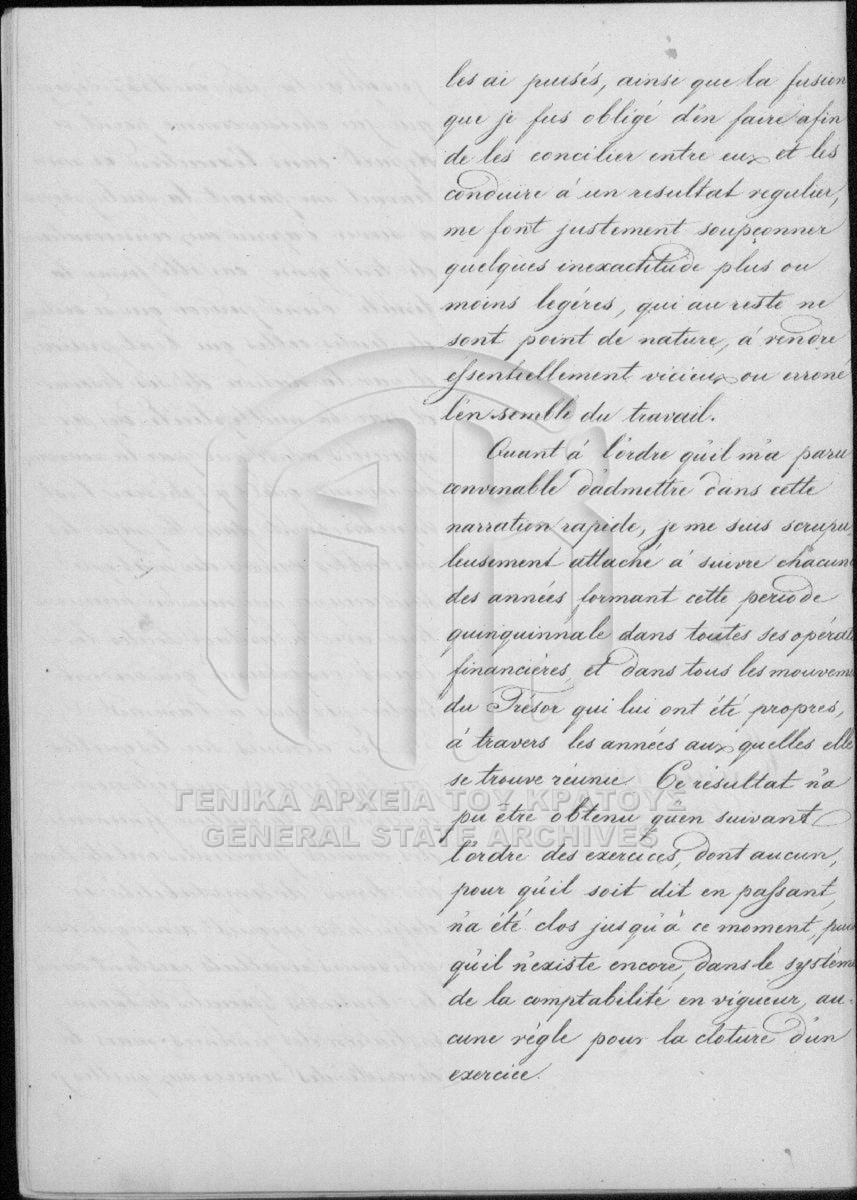 les ai puisés, ainsi que la fusion
que je fus obligé d'en faire afin
de les concilier entre eux et les
conduire à un resultat regulier,
me font justement soupçonner
quelques inexactitude plus ou
moins legéres, qui au reste ne
sont point de nature, á rendre
essentiellement vicieux ou erroné
l'en semble du travail.
Quant á l'ordre qu'il m'a paru
convenable d'admettre dans cette
narration rapide, je me suis scrupu
leusement attaché á suivre chacune
des années formant cette periode
quinquinnale dans toutes ses opérat
financiéres, et dans tous les mouveme
du Trésor qui lui ont été propres,
á travers les années aux quelles elle
se trouve réunie. Ce résultat n'a
pu être obtenu qu'en suivant
ΓΕΝΙΚΑ ΑΡΧΕΙΑ ΤΟΥ ΚΡΑΤΟΥΣ
GENERAL STATE ARCHIVES
l'ordre des exercices, dont aucun,
pour qu'il soit dit en passant,
n'a été clos jusqu'à ce moment, puis
qu'il n'existe encore, dans le systéme
de la comptabilité en vigueur, au-
cune régle pour la cloture d'un
exercice.